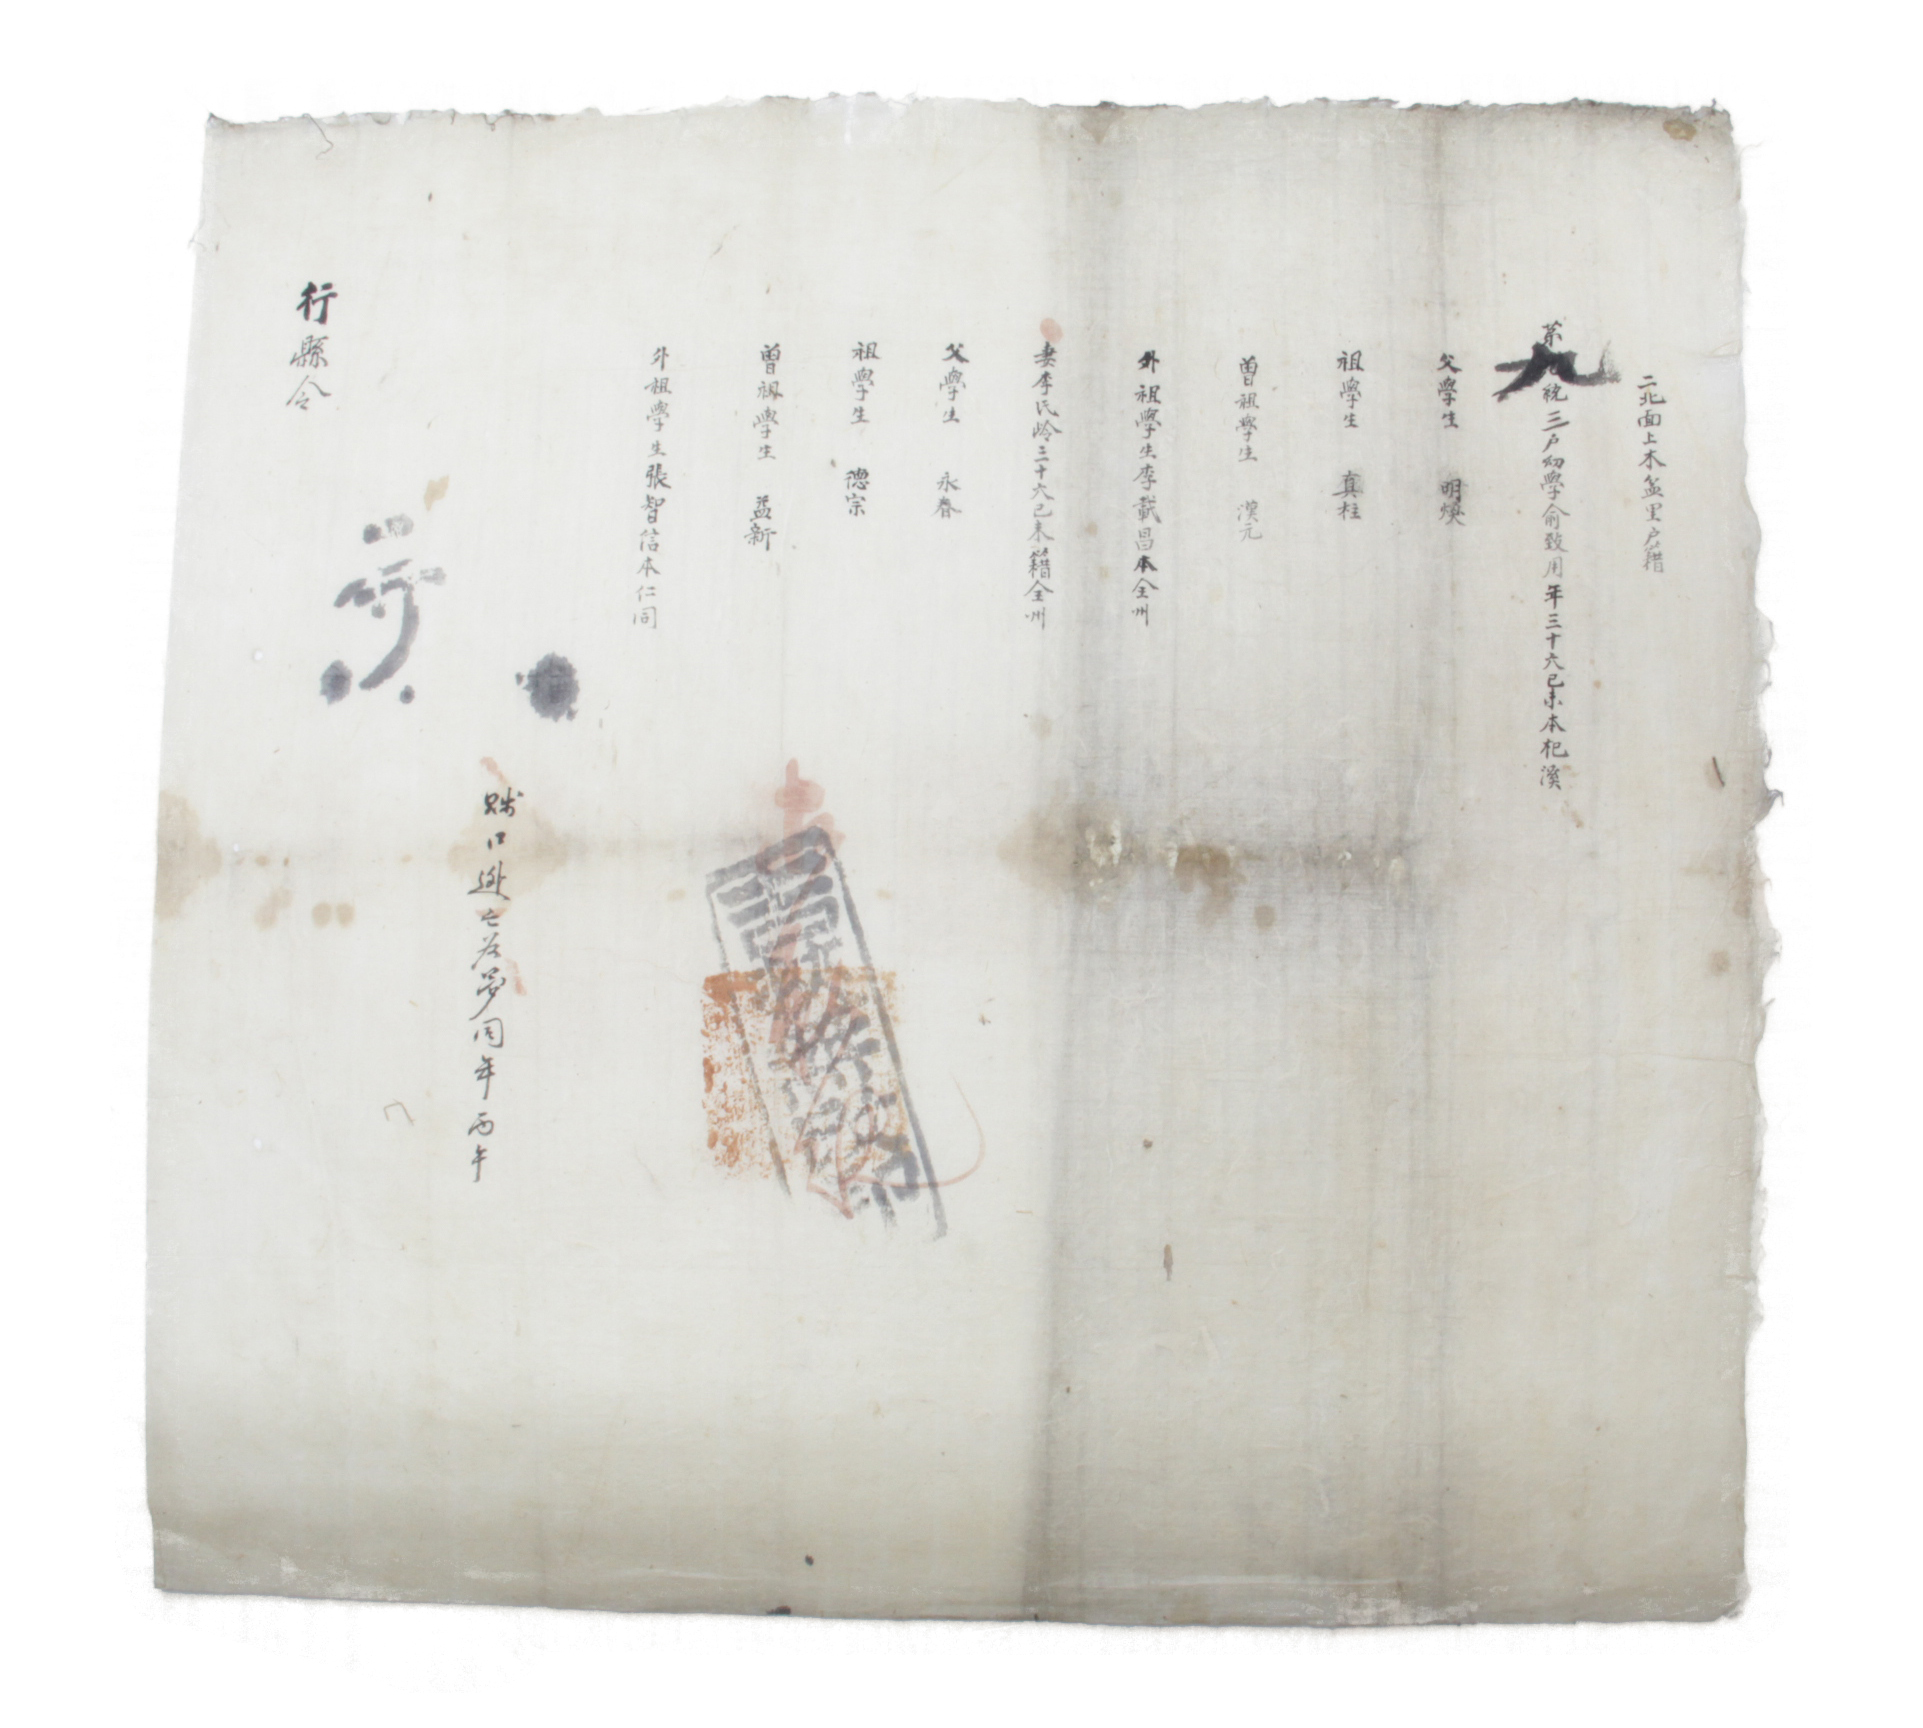 二北面上木盆里戶籍
第九統三戶幼學俞致用年三十六己未本杞溪
父學生 明煥
祖學生 真柱
曾祖學生 漢元
外祖學生李載昌本全州
妻李氏齡三十六己未籍全州
父學生 永春
祖學生 德宗
曾祖學生 益新
外祖學生張智信本仁同
賤口逃亡 同年丙午
行縣令